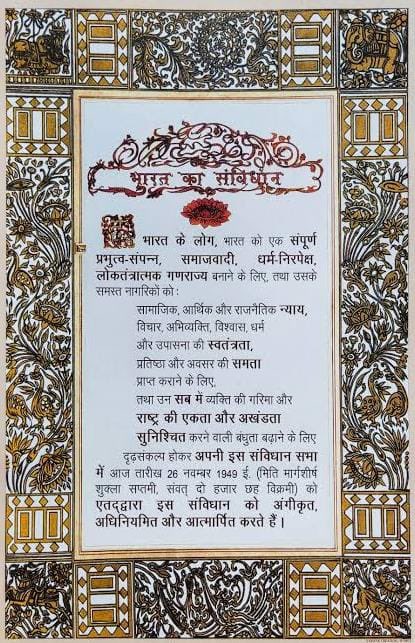 भारत का संविधान
हम भारत के लोग, भारत को एक संपूर्ण
प्रभुत्व-संपन्न, समाजवादी, धर्म-निरपेक्ष,
लोकतंत्रात्मक गणराज्य बनाने के लिए, तथा उसके
समस्त नागरिकों को :
सामाजिक, आर्थिक और राजनैतिक न्याय,
विचार, अभिव्यक्ति, विश्वास, धर्म
और उपासना की स्वतंत्रता,
प्रतिष्ठा और अवसर की समता
प्राप्त कराने के लिए,
तथा उन सब में व्यक्ति की गरिमा और
राष्ट्र की एकता और अखंडता
सुनिश्चित करने वाली बंधुता बढ़ाने के लिए
दृढ़संकल्प होकर अपनी इस संविधान सभा
में आज तारीख 26 नवम्बर 1949 ई. (मिति मार्गशीर्ष
शुक्ला सप्तमी, संवत् दो हजार छह विक्रमी) को
एतद्द्वारा इस संविधान को अंगीकृत,
अधिनियमित और आत्मार्पित करते हैं ।